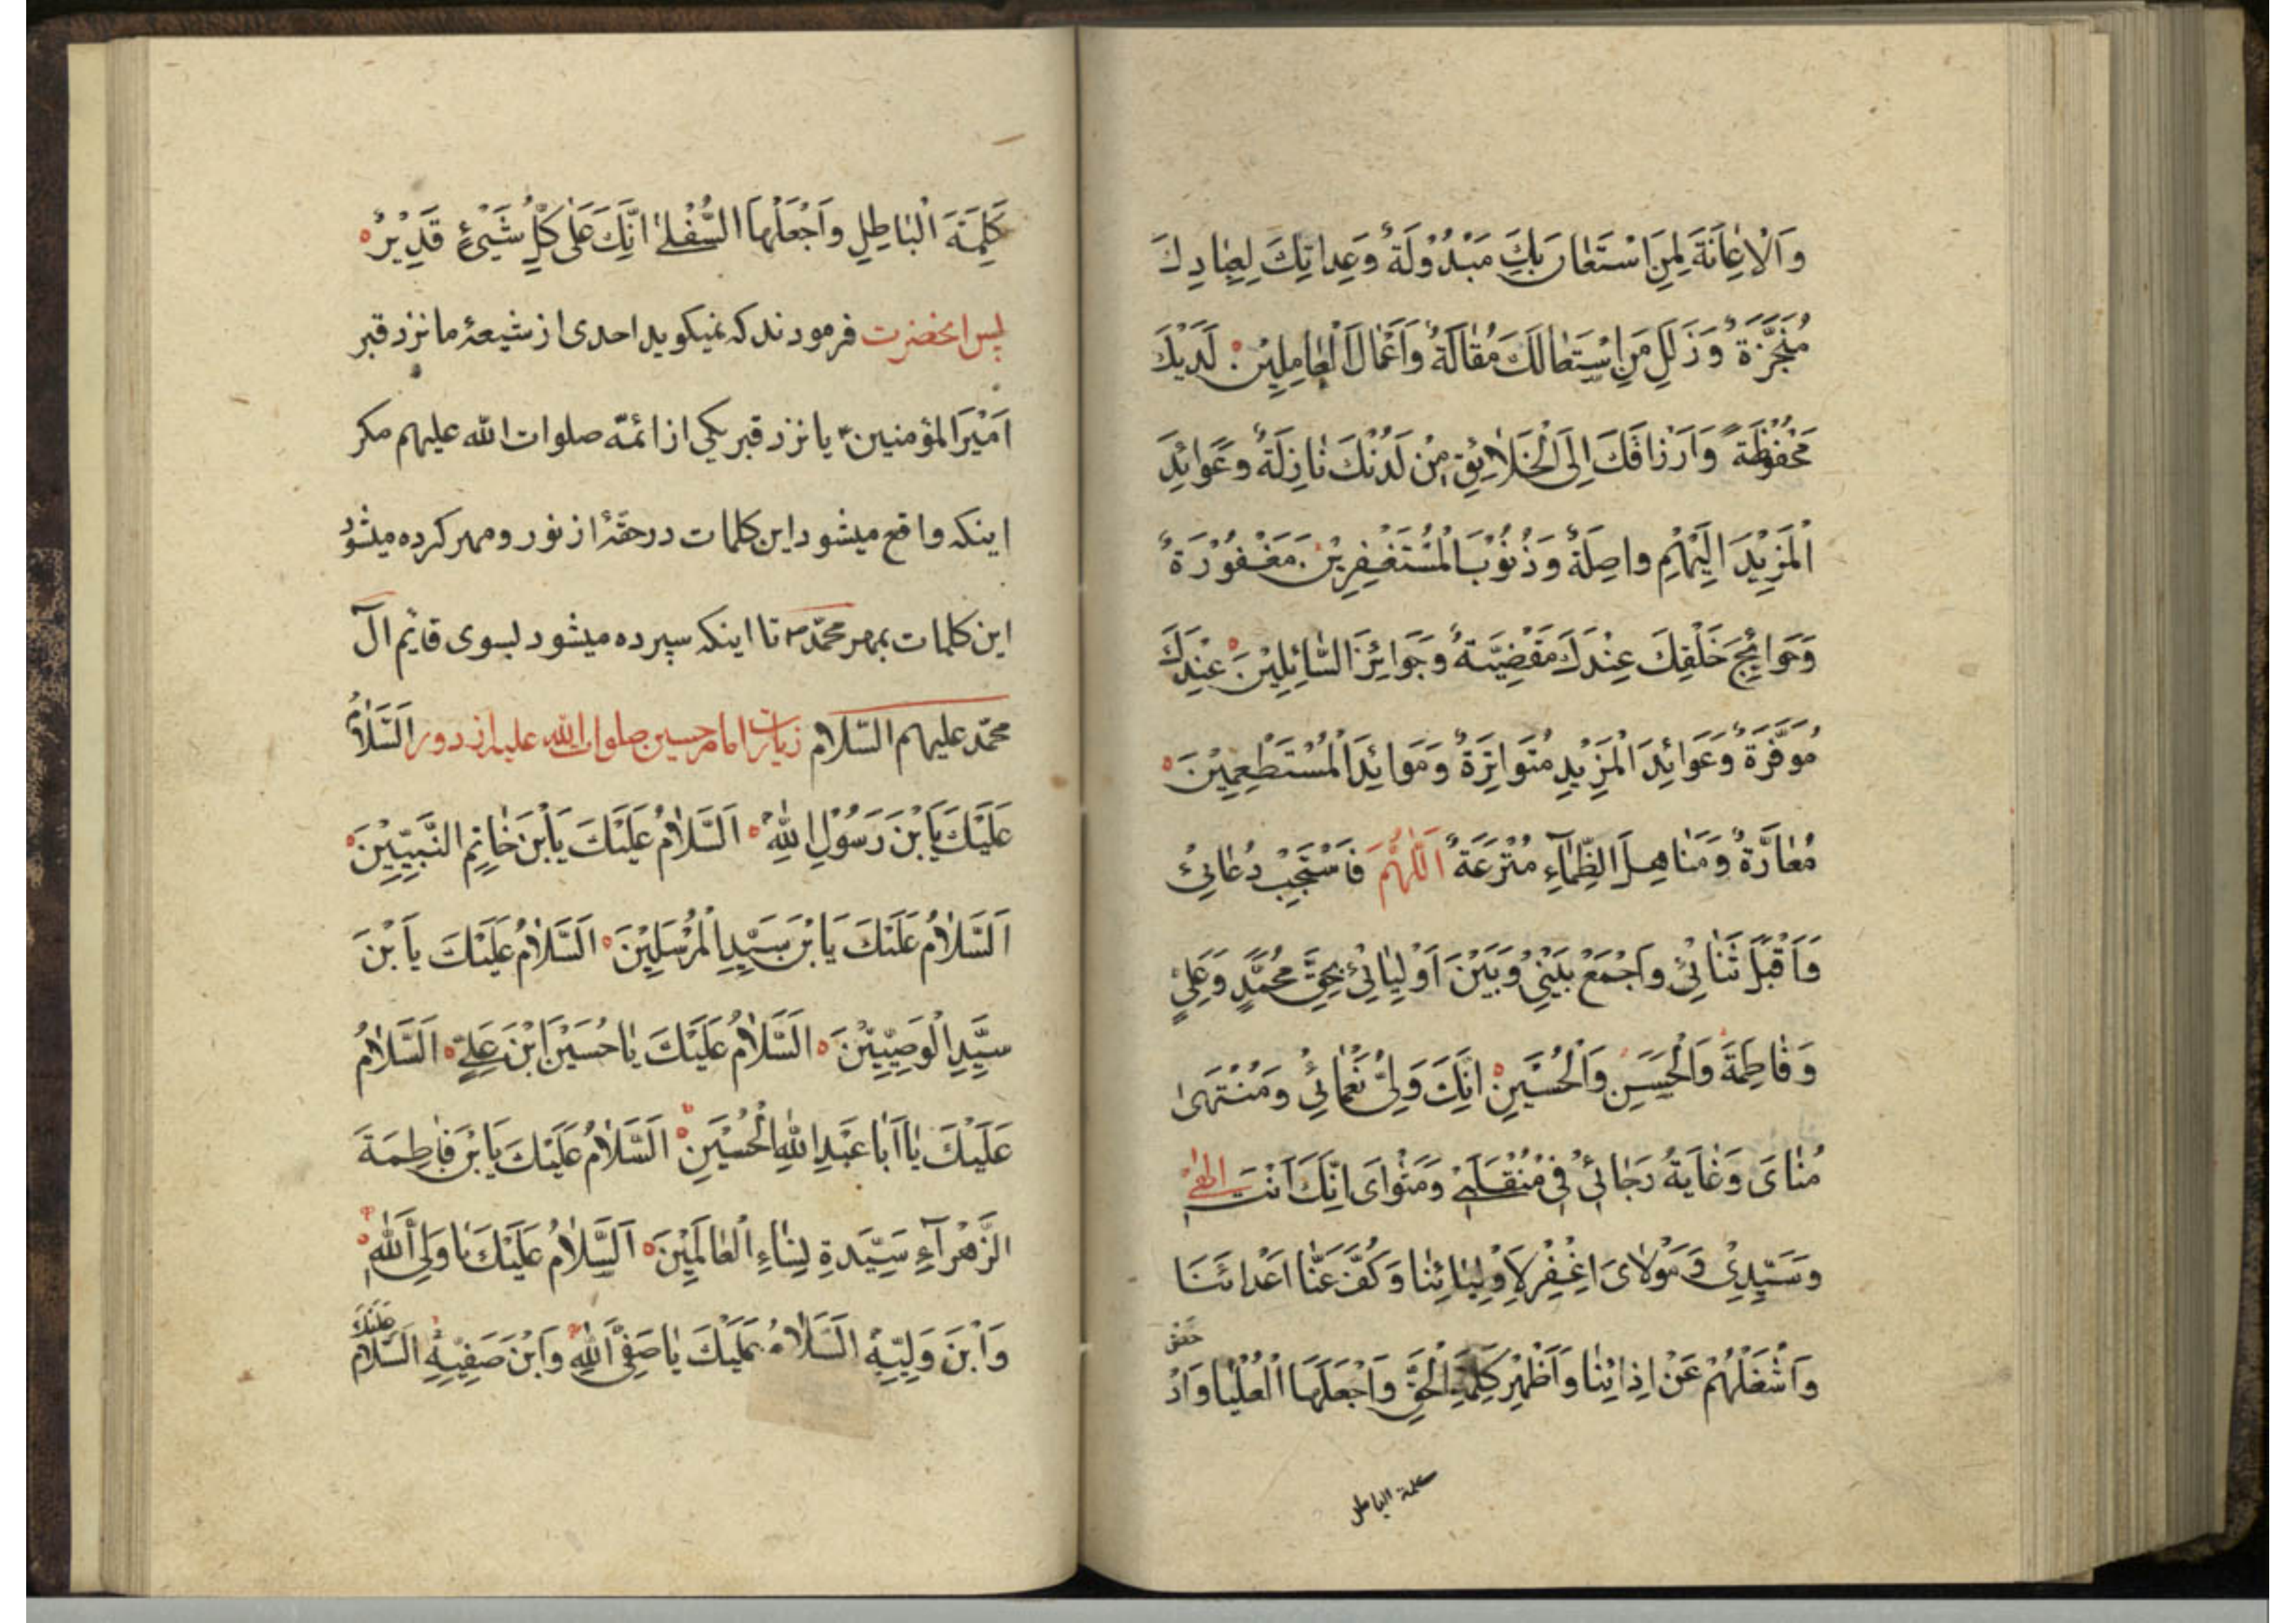 وَالْاِعٰانَةَ لِمَنِ اسْتَعٰانَ بِكَ مَبْذُوْلَةٌ وَعِداتِكَ لِعِبٰادِكَ
مُنْجَزَةٌ وَزَلَلَ مَنِ اسْتَقٰالَكَ مُقٰالَةٌ وَاَعْمٰالَ الْعٰامِلِيْنَ لَدَيْكَ
مَحْفُوْظَةٌ وَاَرْزٰاقَكَ اِلَى الْخَلٰايِقِ مِنْ لَدُنْكَ نٰازِلَةٌ وَعَوائِدَ
الْمَزِيْدِ اِلَيْهِمْ واصِلَةٌ وَذُنُوْبَ الْمُسْتَغْفِرِيْنَ مَغْفُوْرَةٌ
وَحَوائِجَ خَلْقِكَ عِنْدَكَ مَقْضِيَّةٌ وَجَوائِزَ السّٰائِلِيْنَ عِنْدَكَ
مُوَفَّرَةٌ وَعَوائِدَ الْمَزِيْدِ مُتَواتِرَةٌ وَمَوائِدَ الْمُسْتَطْعِمِيْنَ
مُعٰادَّةٌ وَمَنٰاهِلَ الظِّمٰاءِ مُتْرَعَةٌ اَللّٰهُمَّ فَاسْتَجِبْ دُعٰائِيْ
وَاقْبَلْ ثَنٰائِيْ وَاجْمَعْ بَيْنِيْ وَبَيْنَ اَوْلِيٰائِيْ بِحَقِّ مُحَمَّدٍ وَعَلِيٍّ
وَفٰاطِمَةَ وَالْحَسَنِ وَالْحُسَيْنِ اِنَّكَ وَلِيُّ نَعْمٰائِيْ وَمُنْتَهٰى
مُنٰاىَ وَغٰايَةُ رَجٰائِيْ فِيْ مُنْقَلَبِيْ وَمَثْواىَ اِنَّكَ اَنْتَ اِلٰهِيْ
وَسَيِّدِيْ وَمَوْلاىَ اِغْفِرْ لِاَوْلِيٰائِنٰا وَكُفَّ عَنّٰا اَعْدائَنَا
وَاشْغَلْهُمْ عَنْ اِذائِنٰا وَاَظْهِرْ كَلِمَةَ الْحَقِّ وَاجْعَلْهَا الْعُلْيٰا وَادْ
حض
كلمة الباطل
كَلِمَةَ الْبٰاطِلِ وَاجْعَلْهَا السُّفْلىٰ اِنَّكَ عَلىٰ كُلِّ شَيْءٍ قَدِيْرٌ
پس انحضرت فرمودند که نمیکوید احدی از شیعهٔ ما نزد قبر
اَمْیَرالمؤمنین یا نزد قبر یکی از ائمّه صلوات الله علیهم مکر
اینکه واقع میشود این کلمات در حقّهٔ از نور و مهر کرده میشود
این کلمات بمهر محمّد ص تا اینکه سپرده میشود بسوی قایم آل
محمّد علیهم السّلام زیارت امام حسین صلوات الله علیه از دور اَلسَّلٰامُ
عَلَيْكَ يَا بْنَ رَسُوْلِ اللهِ اَلسَّلٰامُ عَلَيْكَ يَا بْنَ خٰاتِمِ النَّبِيّيْنَ
اَلسَّلٰامُ عَلَيْكَ يَا بْنَ سَيِّدِ الْمُرْسَلِيْنَ اَلسَّلٰامُ عَلَيْكَ يَا بْنَ
سَيِّدِ الْوَصِيّيْنَ اَلسَّلٰامُ عَلَيْكَ يٰا حُسَيْنَ ابْنَ عَلِيٍّ اَلسَّلٰامُ
عَلَيْكَ يٰا اَبٰا عَبْدِ اللهِ الْحُسَيْنِ اَلسَّلٰامُ عَلَيْكَ يَا بْنَ فٰاطِمَةَ
الزَّهْرآءِ سَيِّدَةِ نِسٰاءِ الْعٰالَمِيْنَ اَلسَّلٰامُ عَلَيْكَ يٰا وَلِيَّ اللهِ
وَابْنَ وَلِيِّهِ اَلسَّلٰامُ عَلَيْكَ يٰا صَفِيَّ اللهِ وَابْنَ صَفِيِّهِ اَلسَّلٰامُ عَلَيْكَ